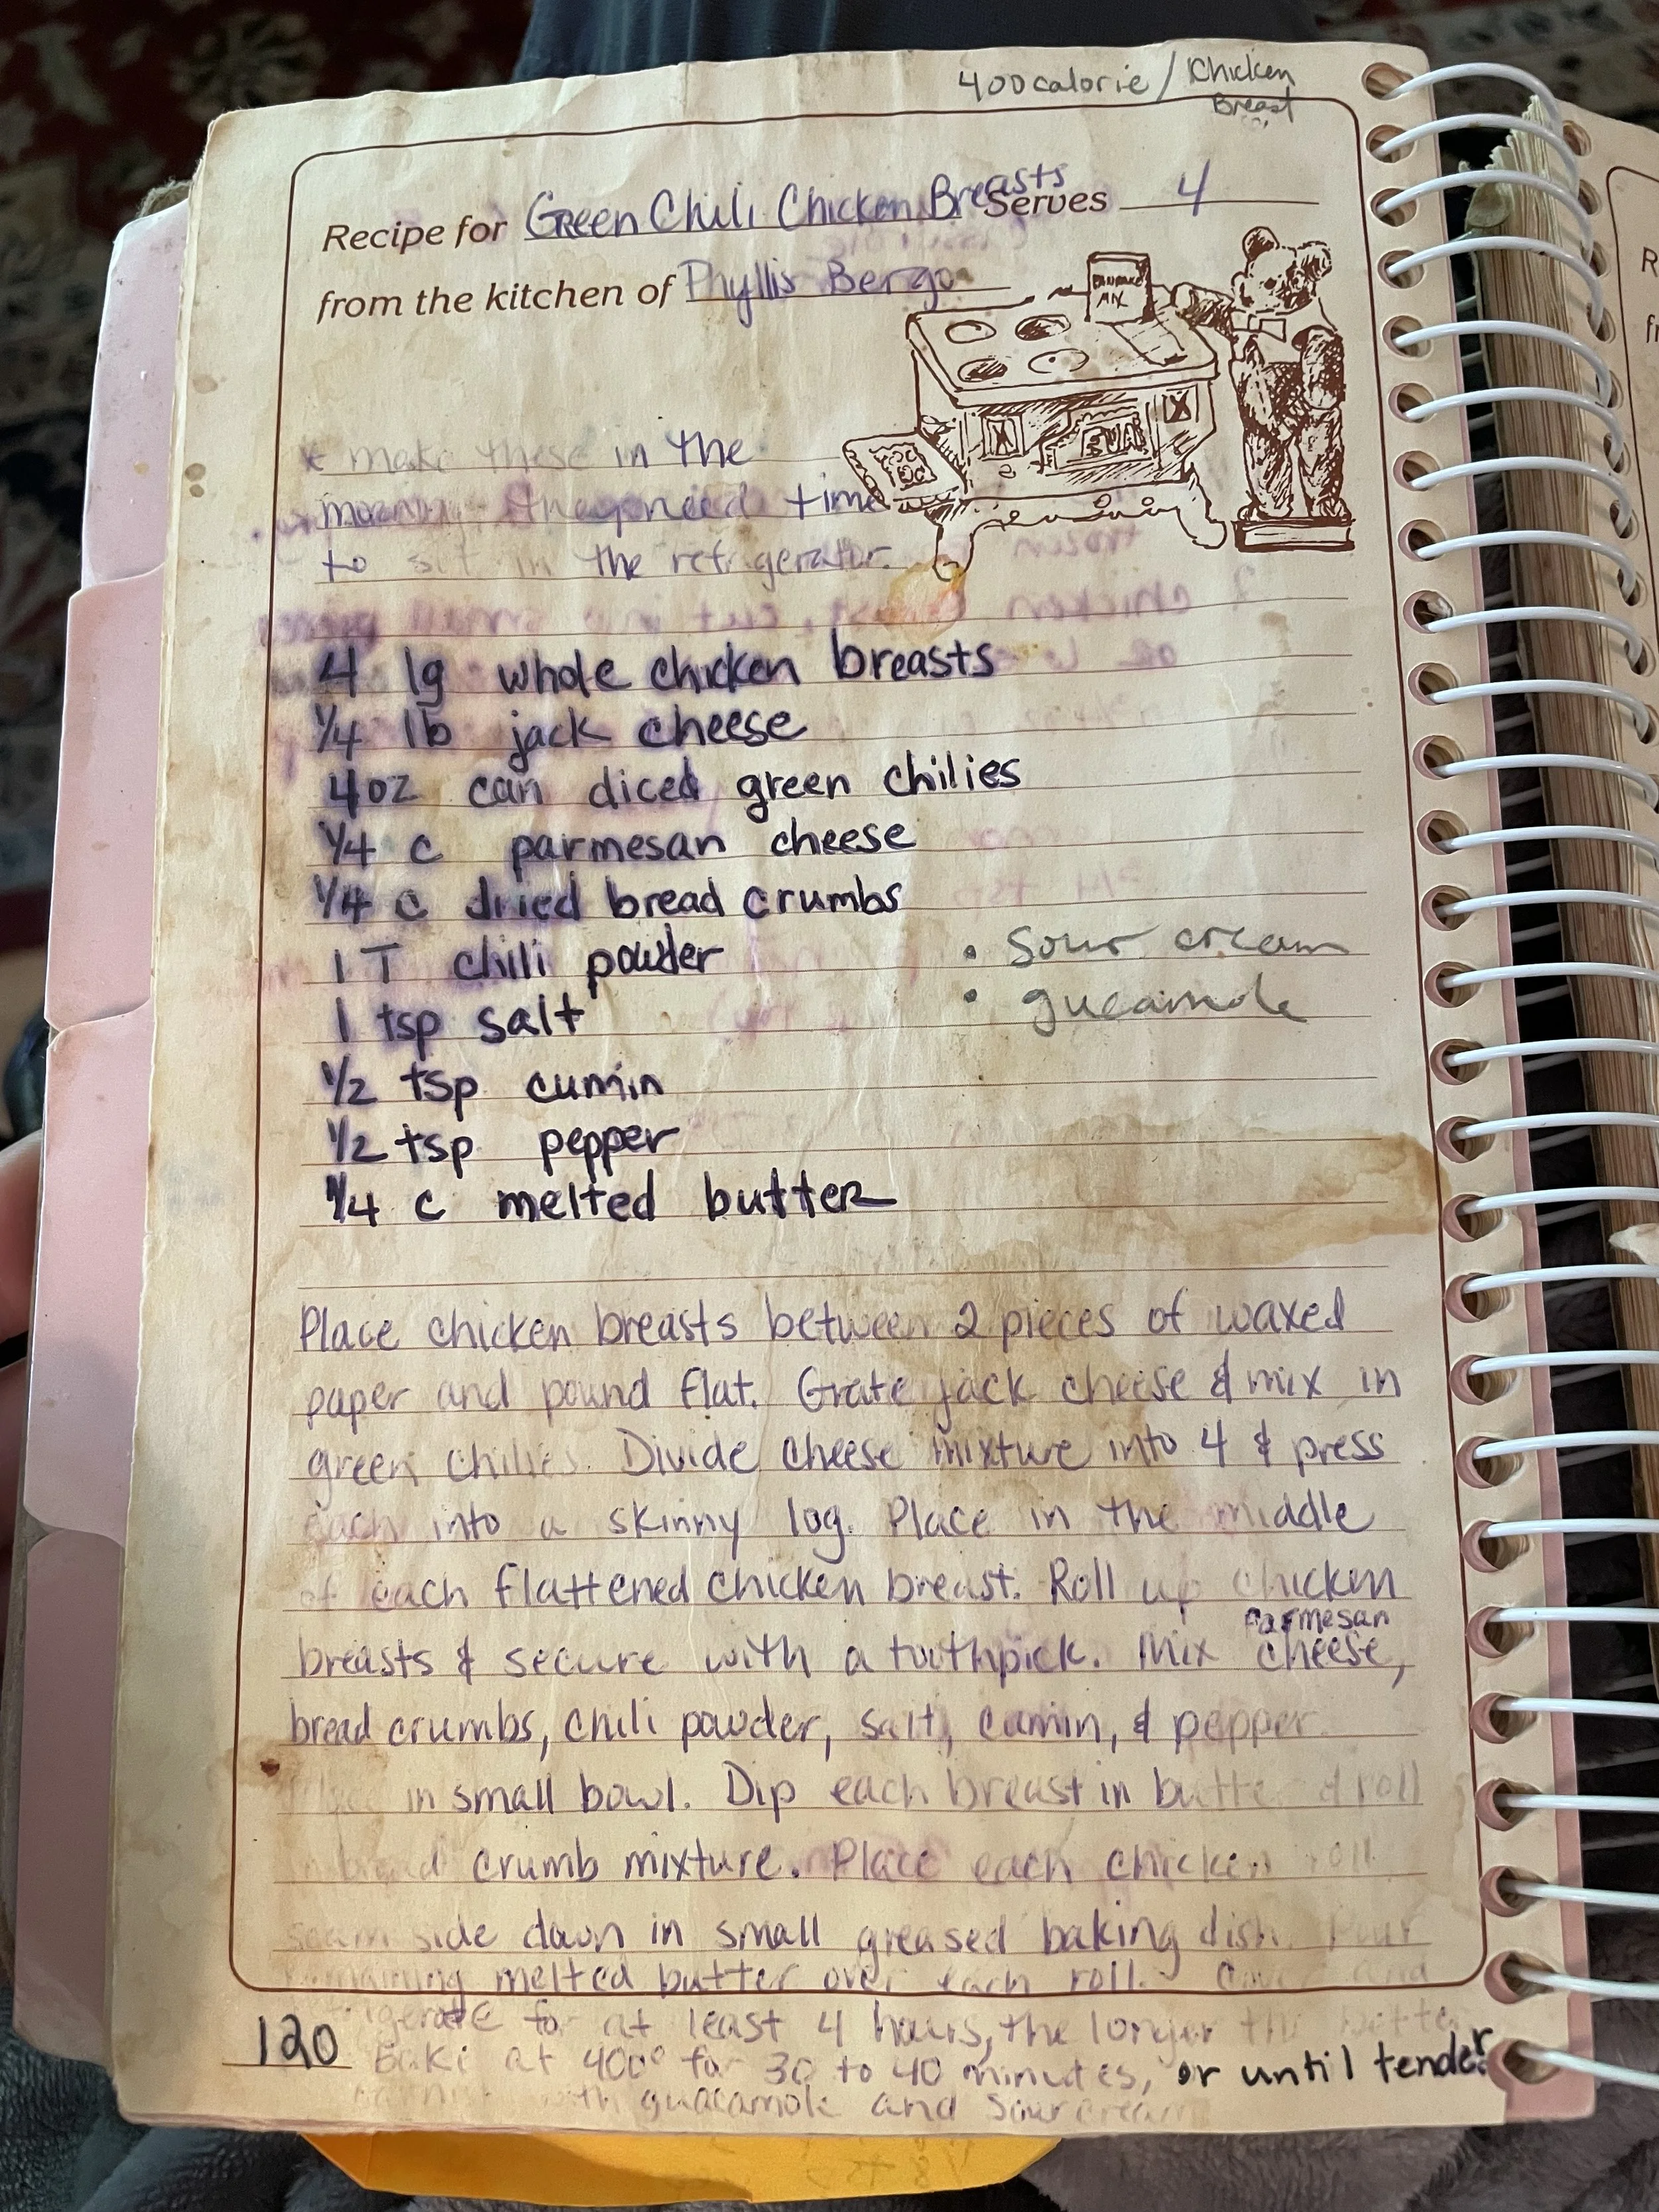 400 calorie / Chicken
Breast
Recipe for Green Chili Chicken Breasts Serves 4
from the kitchen of Phyllis Bergo
PANCAKE
MIX
* make these in the
morning - they need time
to sit in the refrigerator.
4 lg whole chicken breasts
1/4 lb jack cheese
4oz can diced green chilies
1/4 c parmesan cheese
1/4 c dried bread crumbs
1 T chili powder
• sour cream
1 tsp salt
• guacamole
1/2 tsp cumin
1/2 tsp pepper
1/4 c melted butter
Place chicken breasts between 2 pieces of waxed
paper and pound flat. Grate jack cheese & mix in
green chilies. Divide cheese mixture into 4 & press
each into a skinny log. Place in the middle
of each flattened chicken breast. Roll up chicken
parmesan
breasts & secure with a toothpick. Mix cheese,
bread crumbs, chili powder, salt, cumin, & pepper
in small bowl. Dip each breast in butter & roll
crumb mixture. Place each chicken roll
seam side down in small greased baking dish. Pour
remaining melted butter over each roll. Cover and
refrigerate for at least 4 hours, the longer the better
120
Bake at 400° for 30 to 40 minutes, or until tender
garnish with guacamole and sour cream